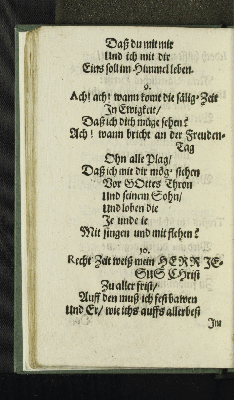 Daß du mit mir
Und ich mit dir
Eins soll im Himmel leben.
9.
Ach! ach! wann komt die sälig-Zeit
In Ewigkeit/
Daß ich dich müge sehen?
Ach! wann bricht an der Freuden-
Tag
Ohn alle Plag/
Daß ich mit dir mög- stehen
Vor GOttes Thron
Und seinem Sohn/
Und loben die
Je unde ie
Mit singen und mit flehen?
10.
Recht Zeit weiß mein HERR JE-
SUS CHrist
Zu aller frist/
Auff den muß ich fest bawen
Und Er/ wie ichs auffs allerbest
Ins